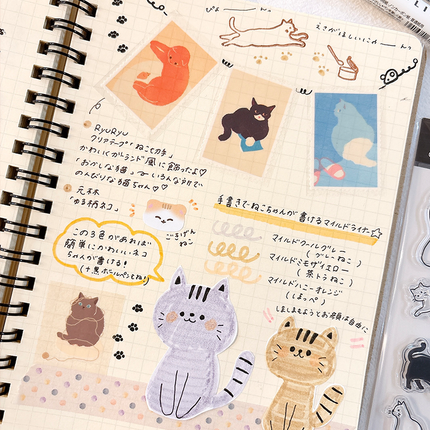 ぴょーーん
えさがほしいにゃーーん
RyuRyu
クリアテープ"ねことカラ"
かわいくガーランド風に飾ったよ♡
「おかしな猫」〜いろんな猫で
のんびりな猫ちゃん♡
元林
「ゆる柄ネコ」
ごきげん
ねこ
手書きでねこちゃんが書けるマイルドライナー☆
マイルドクールグレー
(グレーねこ)
マイルドミモザイエロー
(茶トラねこ)
マイルドハニーオレンジ
(ほっぺ)
ほしまもようとお洋服は自由に
この3色があれば
簡単にかわいいネコ
ちゃんが書ける!
(+黒ボールペンとね)